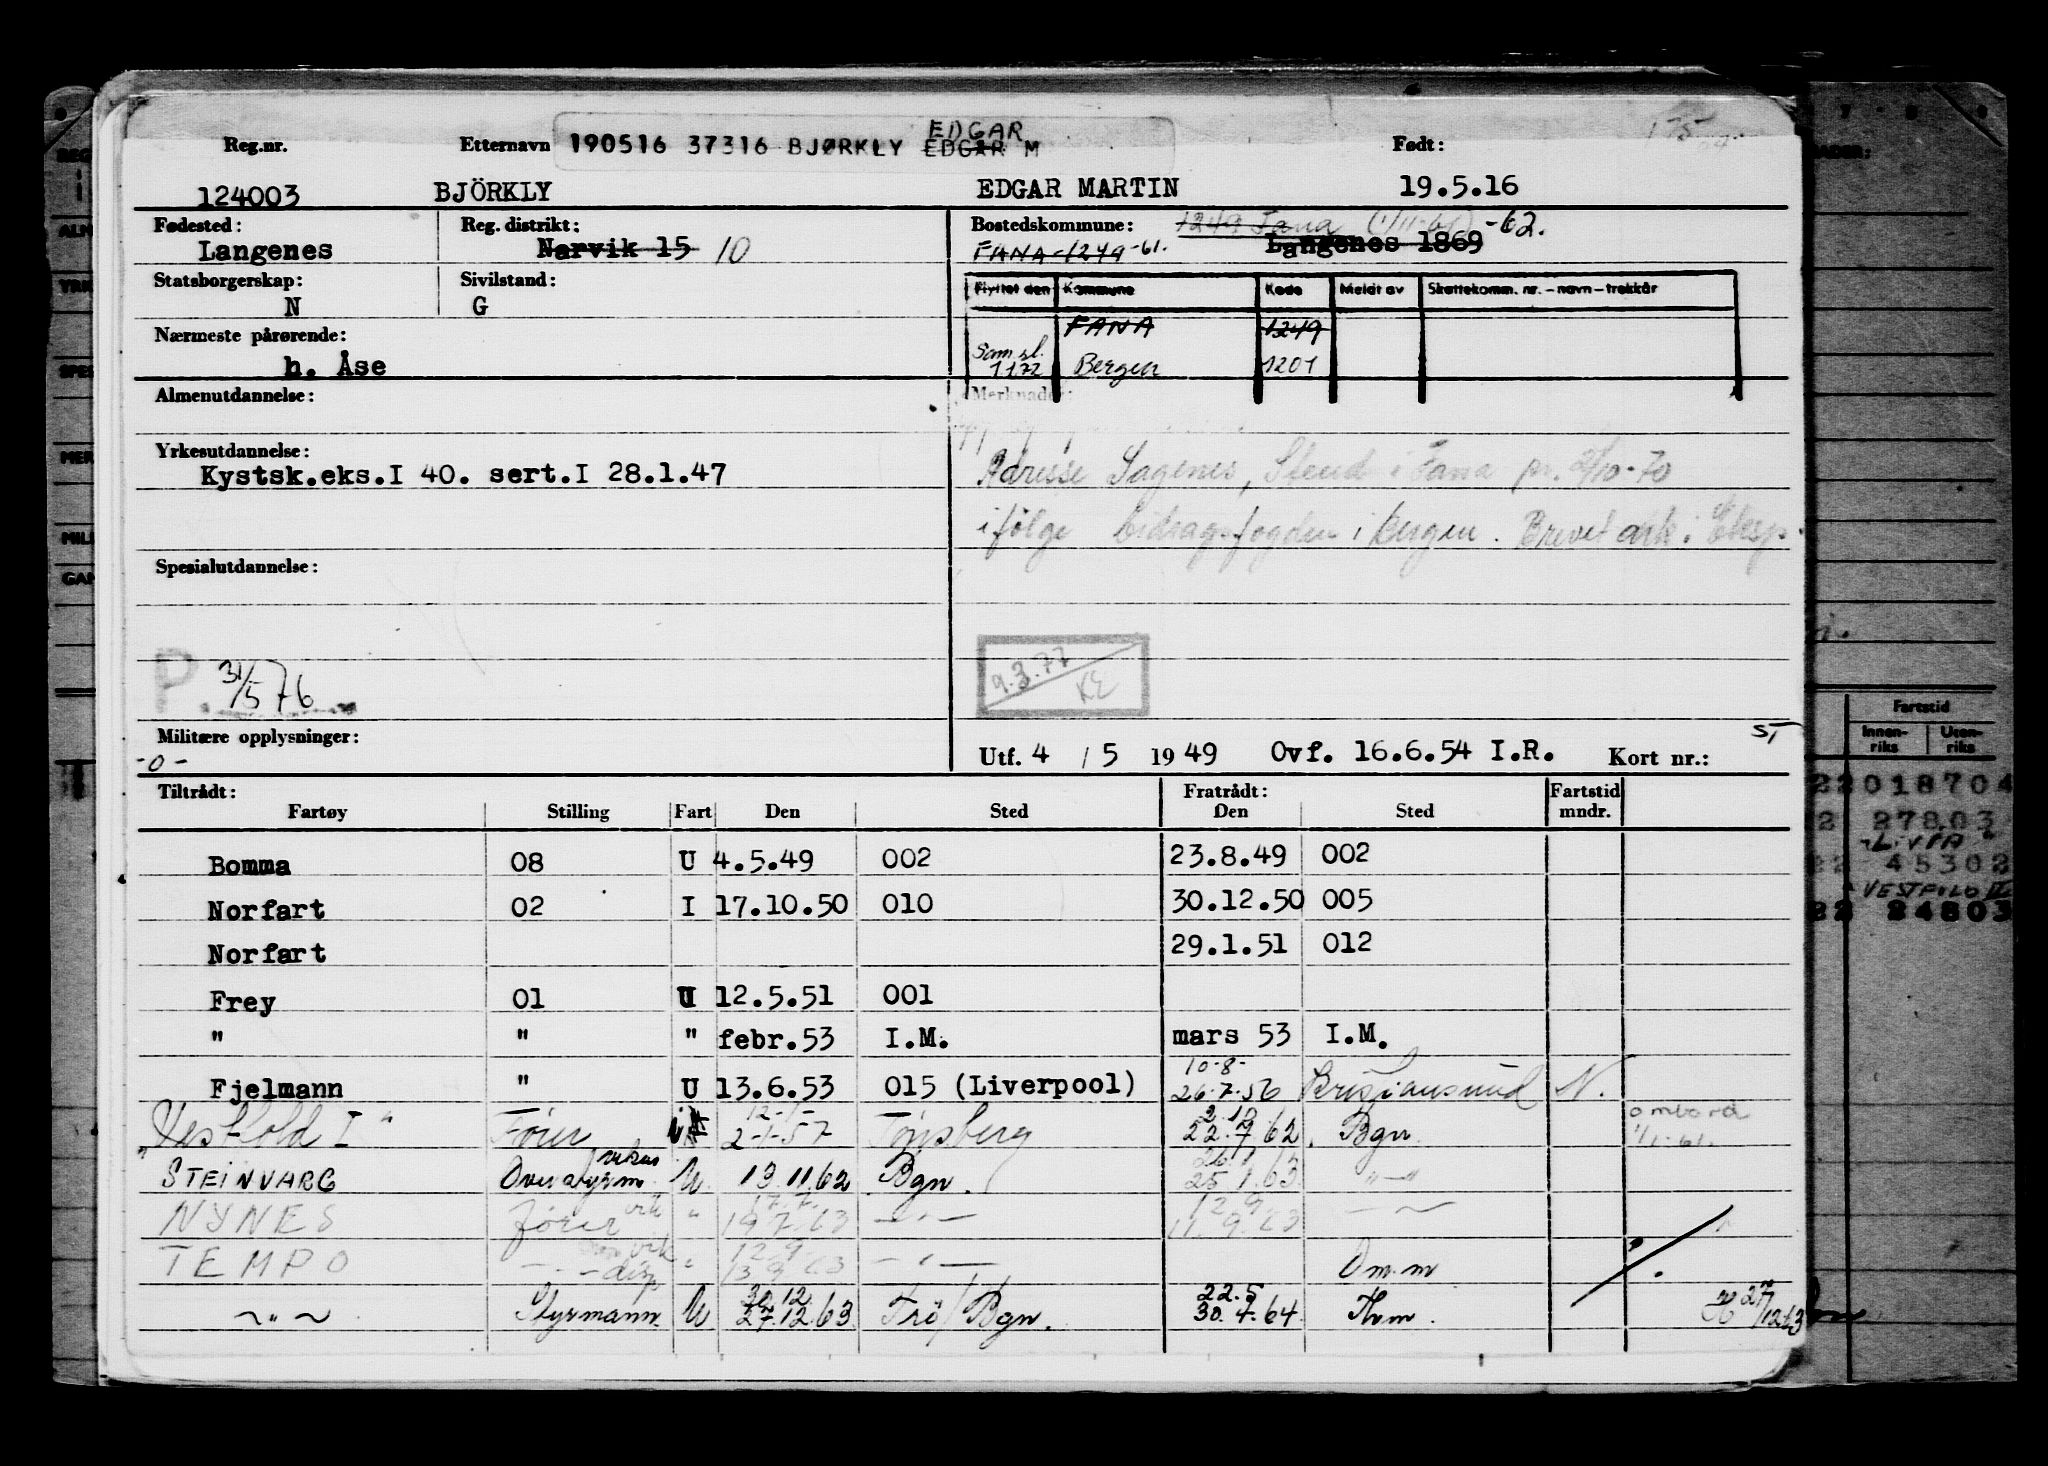 Reg.nr. Etternavn 190516 37316 BJØRKLY EDGAR M EDGAR Født:
124003 BJÖRKLY EDGAR MARTIN 19.5.16
Fødested: Reg. distrikt: Bostedskommune: 1249 Fana (1/11-61) -62.
Langenes Narvik 15 10 FANA-1249-61. Langenes 1869
Statsborgerskap: Sivilstand:
N G
Flyttet den Kommune Kode Meldt av Skattekomm. nr. – navn – trekkår
Nærmeste pårørende: FANA 1249
h. Åse Sam.sl. 1172 Bergen 1201
Almenutdannelse: Merknader:
Yrkesutdannelse:
Kystsk.eks.I 40. sert.I 28.1.47
Adresse Sagenes, Stend i Fana pr. 2/10-70
ifølge bidragsfogden i Bergen. Brevet ark. i Eksp.
Spesialutdannelse:
P 31/5 76
9.3.77 KE
Militære opplysninger: -0-
Utf. 4 / 5 1949 Ovf. 16.6.54 I.R. Kort nr.: ST
Tiltrådt: Fratrådt: Fartstid
Fartøy Stilling Fart Den Sted Den Sted mndr.
Bomma 08 U 4.5.49 002 23.8.49 002
Norfart 02 I 17.10.50 010 30.12.50 005
Norfart 29.1.51 012
Frey 01 U 12.5.51 001
" " " febr.53 I.M. mars 53 I.M.
10-8-
Fjelmann " U 13.6.53 015 (Liverpool) 26.7.56 Kristiansund N.
12-1- 2.12 ombord
Vestfold I" Fører 2-1-57 Tønsberg 22.7.62 Bgn. 1/1-61.
"STEINVARG Overstyrm. vikar U. 13.11.62 Bgn. 26.1.63 25.1.63 "-"
NYNES fører vik " 17.7. 19.7.63 -"- 12.9. 11.9.63
TEMPO vik disp " 12.9 13.9.63 -"- Om.m
-"- Styrmann. U 30.12. 27.12.63 Frö/Bgn. 22.5 30.4.64 Thm. 27/12 63
Fartstid
Innen- Uten-
riks riks
22018704
2 27803
LIVIA
22 45302
VESTFOLD II
22 24803